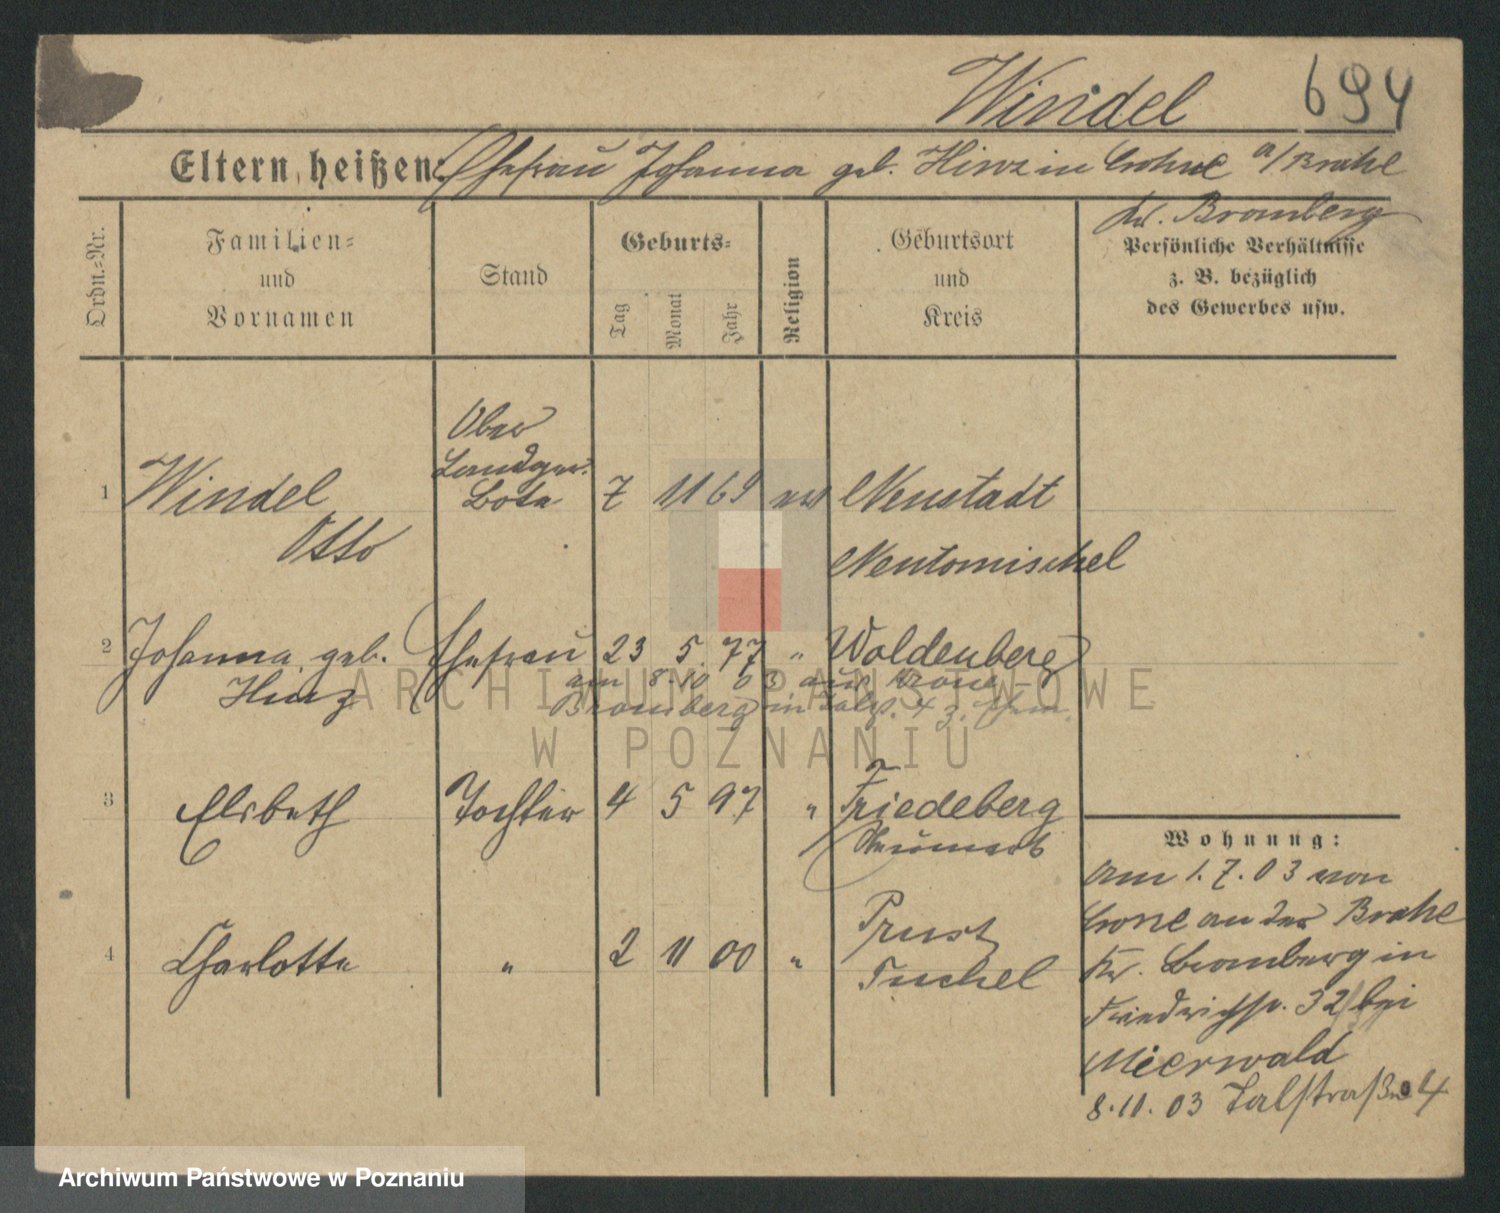 Windel 694
Eltern heißen: Ehefrau Johanna geb. Hinz in Crone a/Brahe
Kr. Bromberg
Ordn.-Nr.
Familien-
und
Vornamen
Stand
Geburts-
Tag
Monat
Jahr
Religion
Geburtsort
und
Kreis
Persönliche Verhältnisse
z. B. bezüglich
des Gewerbes usw.
1 Windel
Otto
Ober
Landger.
Bote
7 11 69 ev Neustadt
Neutomischel
2 Johanna geb.
Hinz
Ehefrau 23 5. 77 " Woldenberg
am 8.10 03 aus Krone
Bromberg in Talst. 4 z.
3 Elsbeth Tochter 4 5 97 " Friedeberg
Neumark
4 Charlotte " 2 11 00 " Prust
Tuchel
Wohnung:
Am 1.7.03 von
Crone an der Brahe
Kr. Bromberg in
Friedrichstr. 32 bei
Meerwald
8.11.03 Talstraße 4
ARCHIWUM PAŃSTWOWE
W POZNANIU
Archiwum Państwowe w Poznaniu